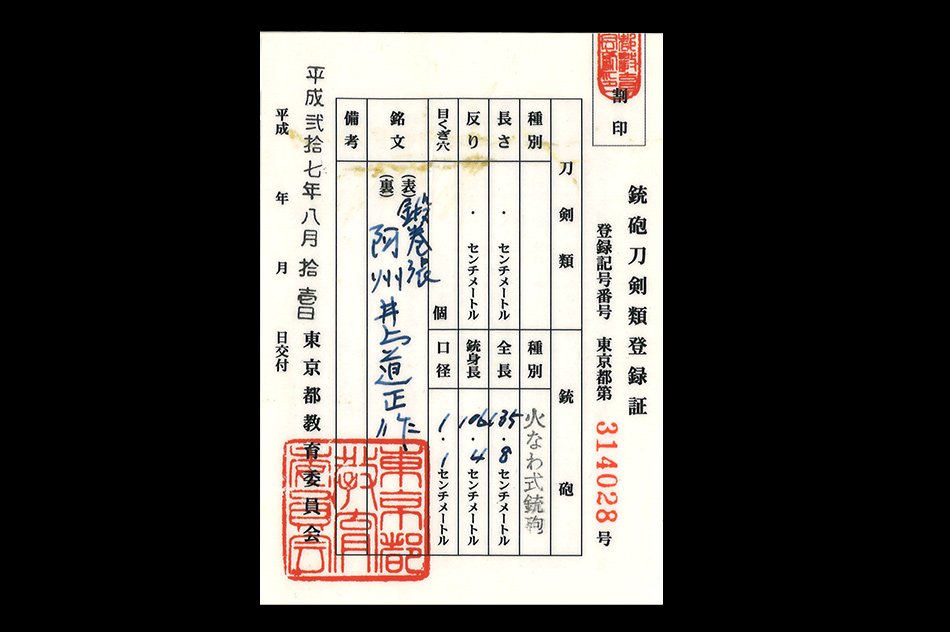 割印
銃砲刀剣類登録証
登録記号番号 東京都第 314028 号
刀剣類
銃砲
種別
種別 火なわ式銃砲
長さ ・ センチメートル
全長 135・8 センチメートル
反り ・ センチメートル
銃身長 106・4 センチメートル
目くぎ穴 個
口径 1・1 センチメートル
銘文
(表) 鍛巻張
(裏) 阿州井上道正作
〃
備考
平成弐拾七年八月拾壱日
東京都教育委員会
平成 年 月 日交付
東京都
教育
委員会